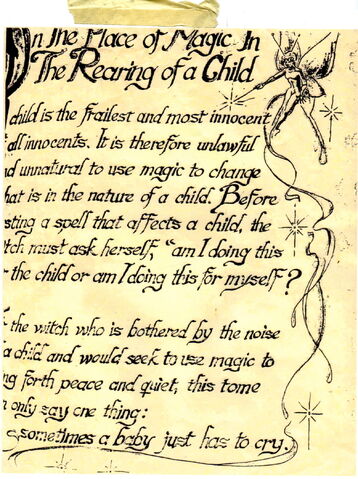 On The Place of Magic In
The Rearing of a Child
child is the frailest and most innocent
all innocents. It is therefore unlawful
d unnatural to use magic to change
hat is in the nature of a child. Before
sting a spell that affects a child, the
tch must ask herself, "am I doing this
r the child or am I doing this for myself?
the witch who is bothered by the noise
a child and would seek to use magic to
ng forth peace and quiet, this tome
n only say one thing:
sometimes a baby just has to cry.